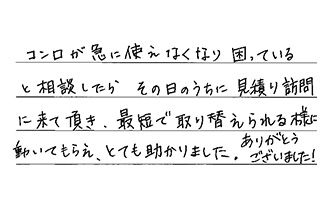 コンロが急に使えなくなり困っている
と相談したら その日のうちに見積り訪問
に来て頂き、最短で取り替えられる様に
動いてもらえ、とても助かりました。ありがとう
ございました!